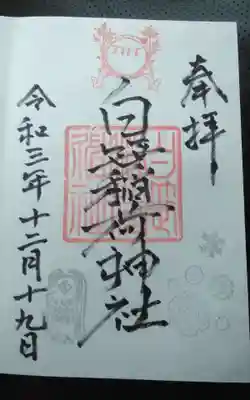 奉拝
白笹稲荷神社
令和三年十二月十九日